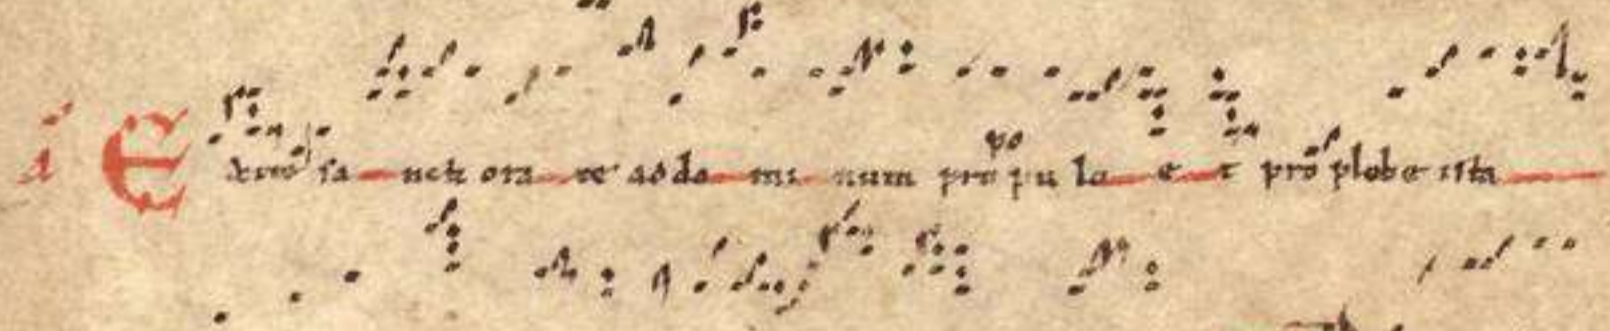 sancti orate ad dominum pro populo et pro plebe ista